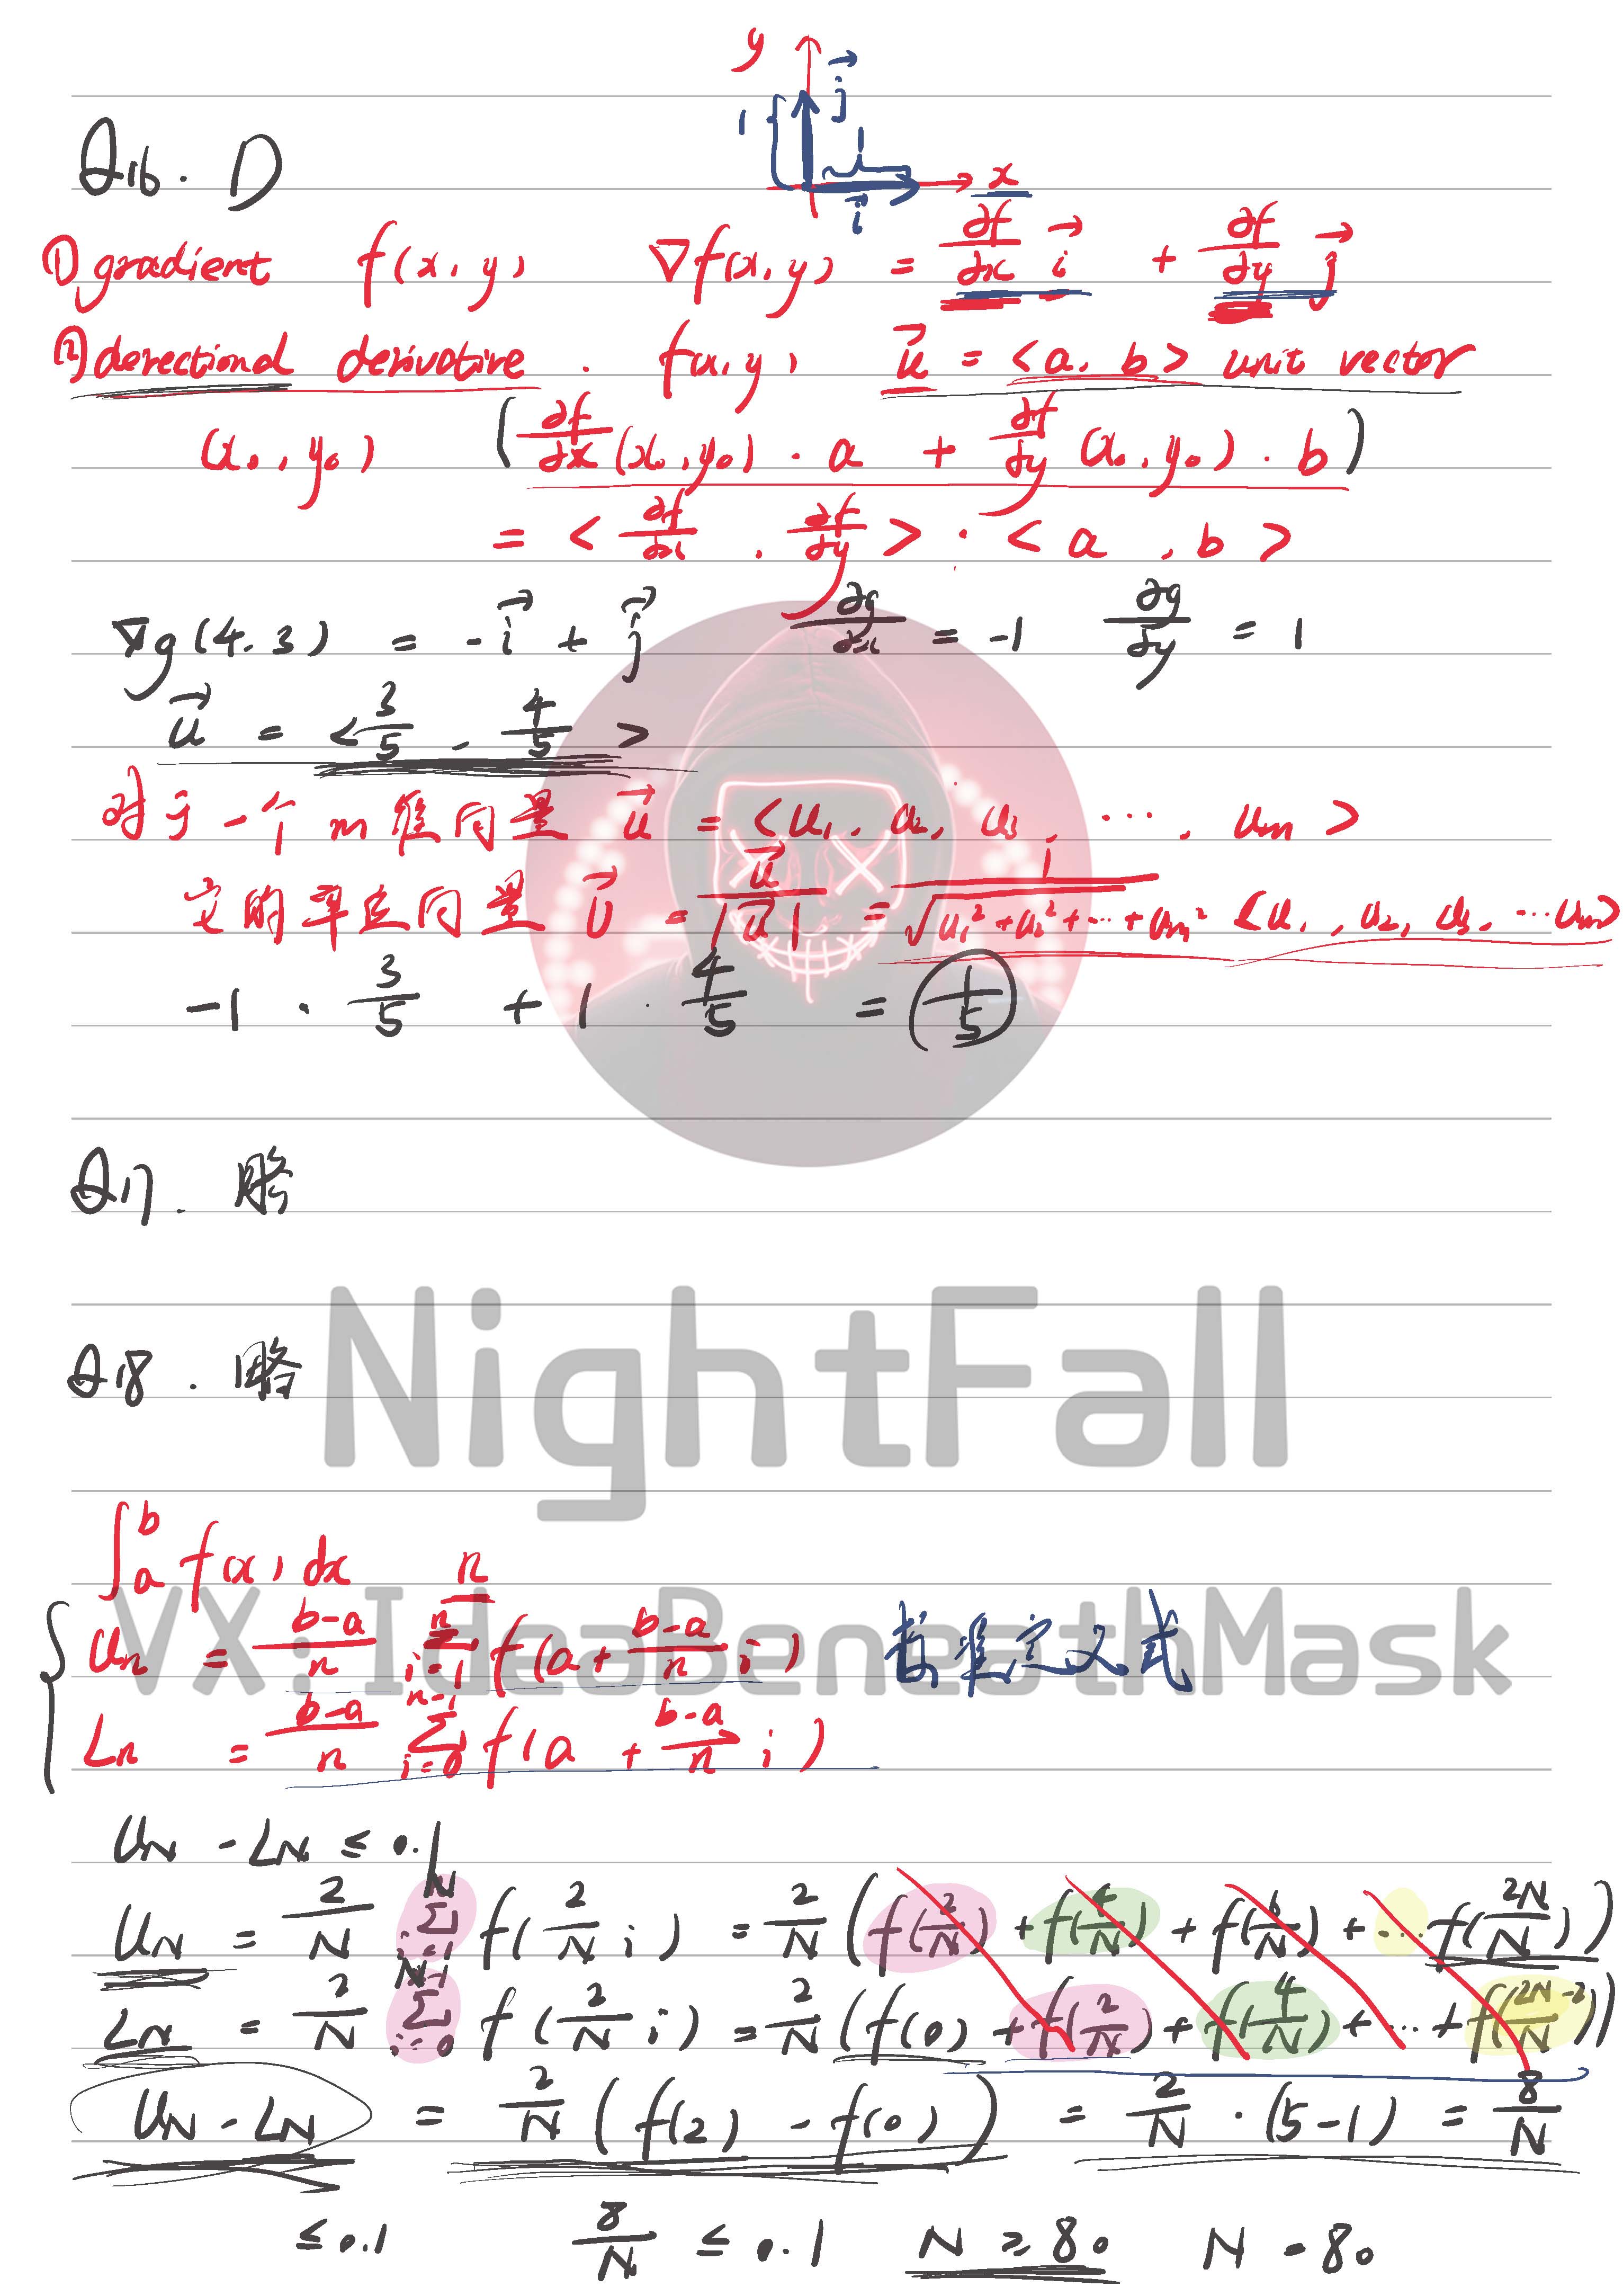 y
j⃗
1
1
x
i⃗
Q16. D
① gradient f(x, y) ∇f(x, y) = ∂f/∂x i⃗ + ∂f/∂y j⃗
② derectional derivative. f(x, y) u⃗ = <a, b> unit vector
(x₀, y₀) (∂f/∂x (x₀, y₀) · a + ∂f/∂y (x₀, y₀) · b)
= <∂f/∂x, ∂f/∂y> · <a, b>
∇g(4, 3) = -i⃗ + j⃗ ∂g/∂x = -1 ∂g/∂y = 1
u⃗ = <3/5, 4/5>
对于一个m维向量 u⃗ = <u₁, u₂, u₃, ..., uₘ>
它的单位向量 U⃗ = u⃗/|u⃗| = 1/√(u₁² + u₂² + ... + uₘ²) <u₁, u₂, u₃, ... uₘ>
-1 · 3/5 + 1 · 4/5 = 1/5
Q17. 略
NightFall
Q18. 略
∫ₐᵇ f(x) dx n
VX: IdeaBeneathMask
Uₙ = (b-a)/n Σᵢ₌₁ⁿ f(a + (b-a)/n i) 标准定义式
Lₙ = (b-a)/n Σᵢ₌₀ⁿ⁻¹ f(a + (b-a)/n i)
U_N - L_N ≤ 0.1
U_N = 2/N Σᵢ₌₁ᴺ f(2/N i) = 2/N (f(2/N) + f(4/N) + f(6/N) + ... f(2N/N))
L_N = 2/N Σᵢ₌₀ᴺ⁻¹ f(2/N i) = 2/N (f(0) + f(2/N) + f(4/N) + ... + f((2N-2)/N))
U_N - L_N = 2/N (f(2) - f(0)) = 2/N · (5-1) = 8/N
≤ 0.1 8/N ≤ 0.1 N ≥ 80 N = 80